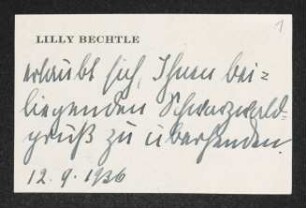 1
LILLY BECHTLE
erlaubt sich, Ihnen bei=
liegenden Schwarzwald=
gruß zu übersenden.
12.9.1936